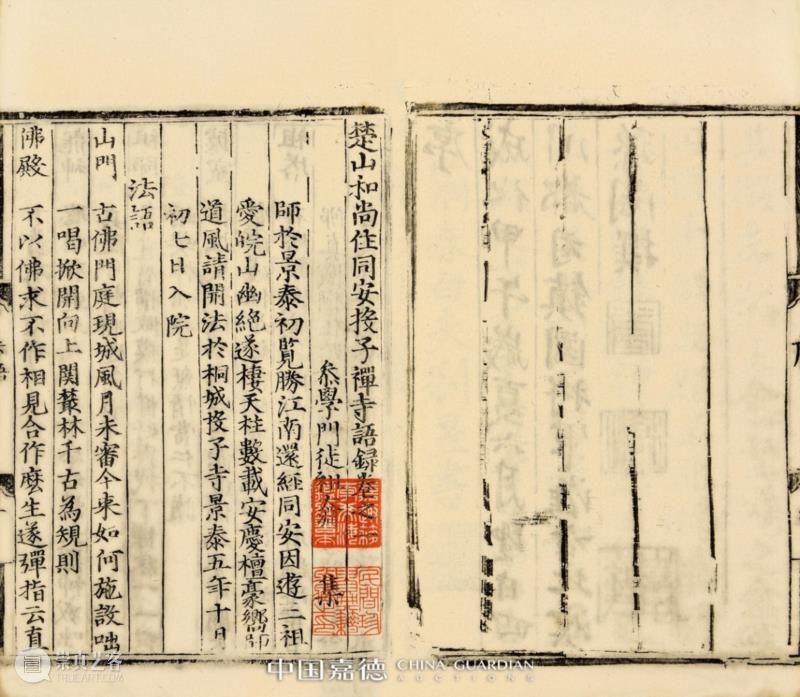 楚山和尚住同安投子禪寺語録卷
叅學門徒 集
師於景泰初覧勝江南還經同安因逰三祖
愛皖山幽絕遂棲天柱數載安慶檀豪嚮
道風請開法於桐城投子寺景泰五年十月
初七日入院
法語
山門 古佛門庭現城風月未審今来如何施設咄
一喝掀開向上関叢林千古為規則
佛殿 不以佛求不作相見合作麽生遂彈指云直
中国嘉德 CHINA GUARDIAN
AUCTIONS
崇真艺客